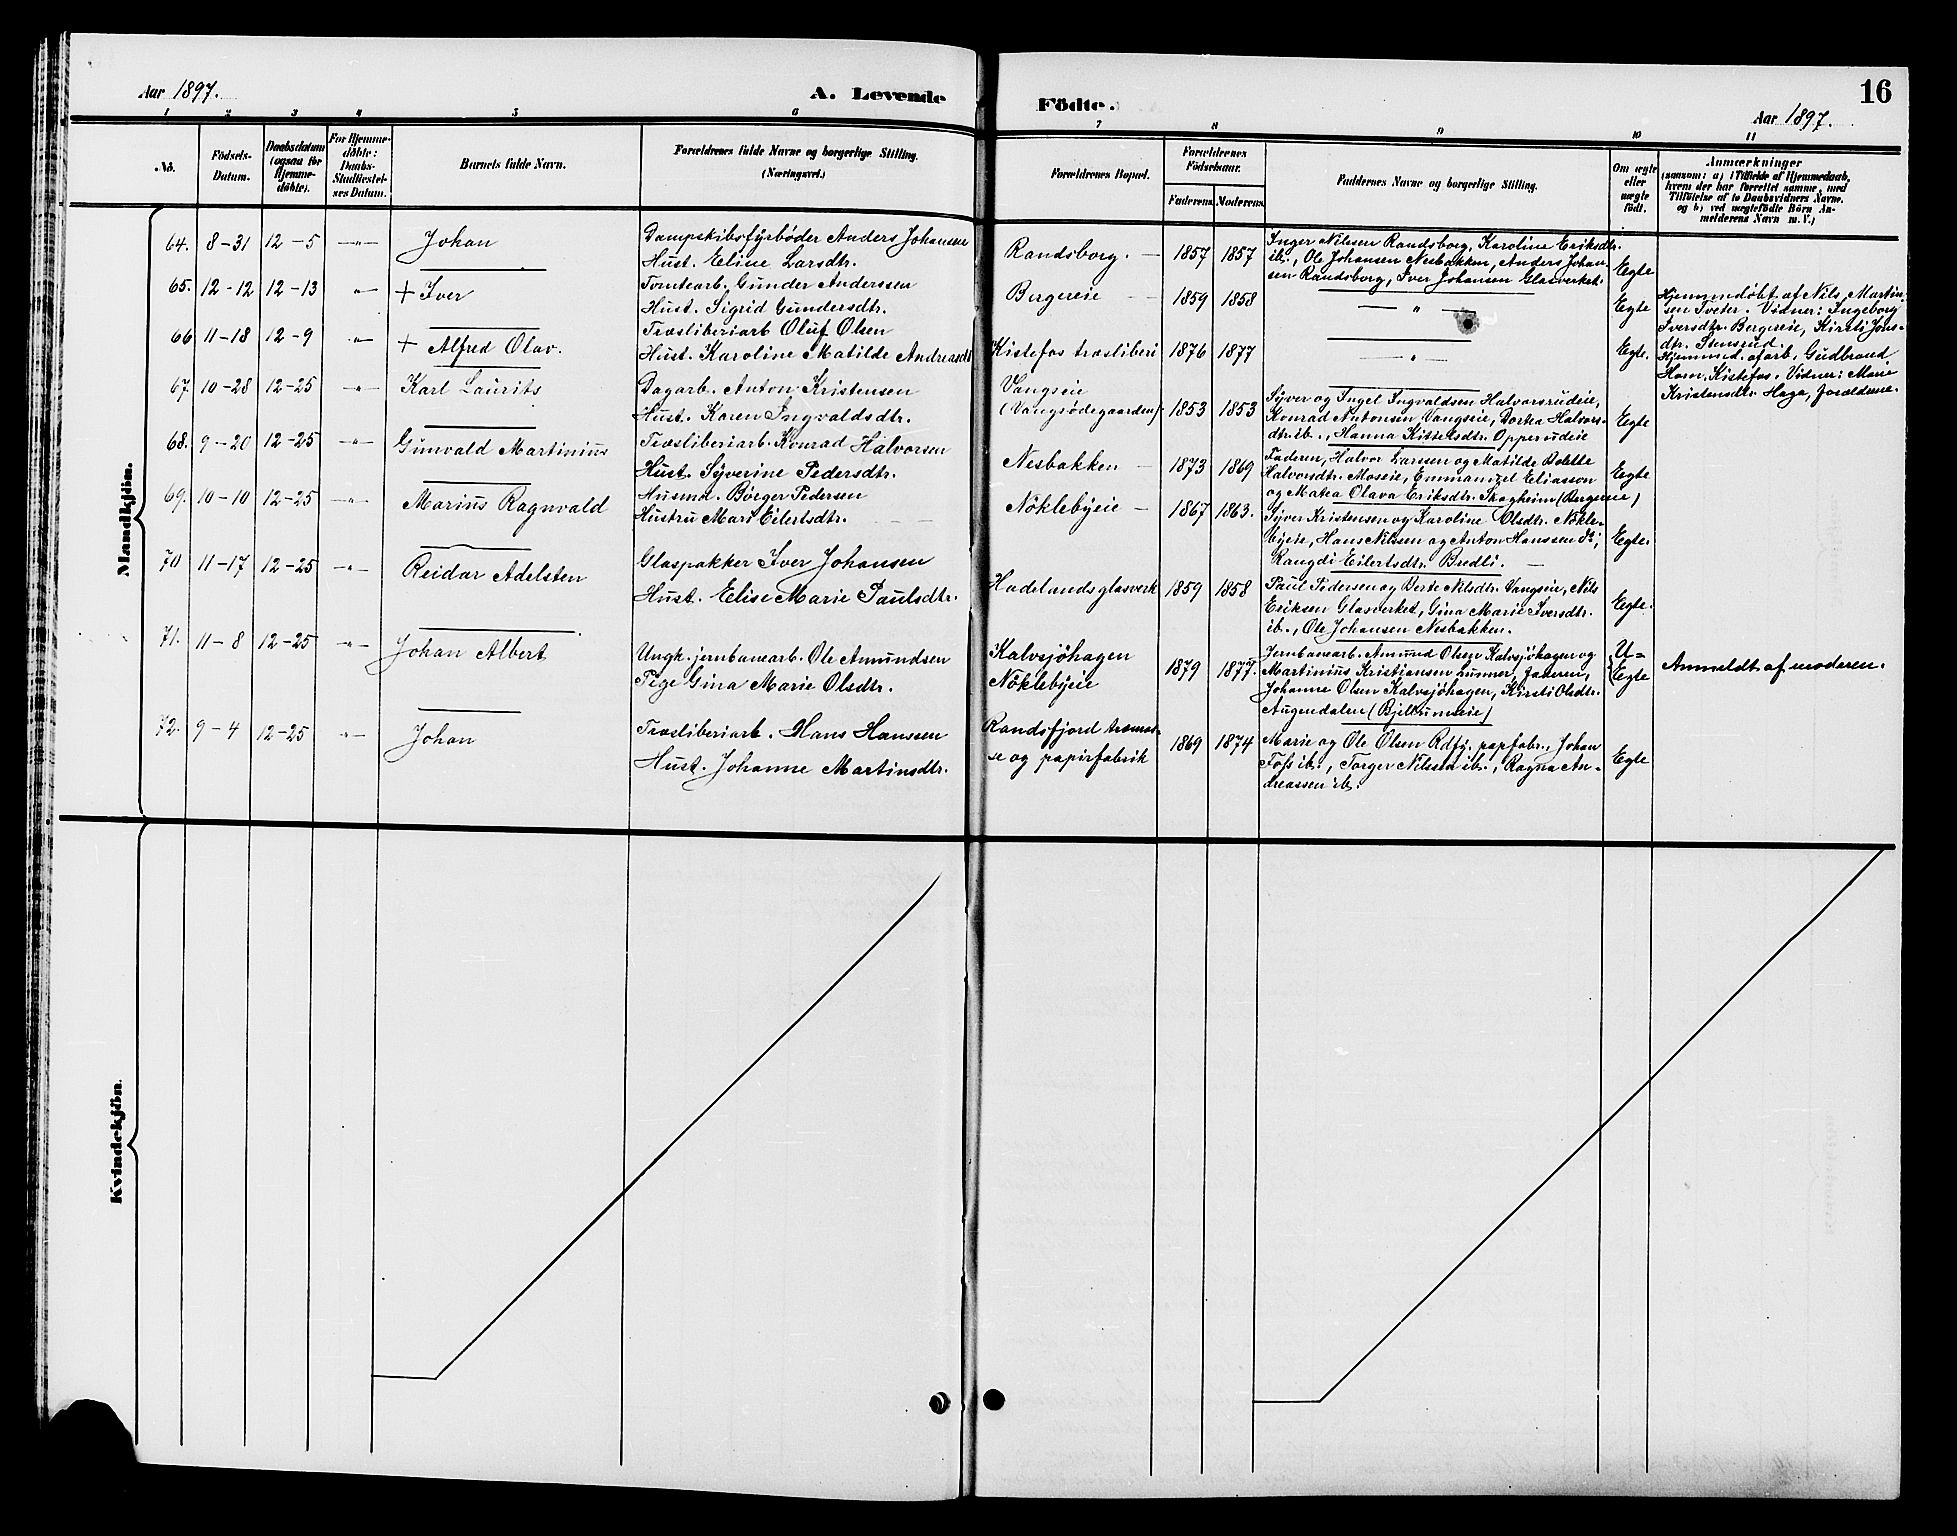 Aar 1897.
A. Levende
Födte.
Aar 1897.
16
1 2 3 4 5 6 7 8 9 10 11
No.
Födsels-Datum.
Daabsdatum (ogsaa for Hjemme-døbte).
For Hjemme-døbte: Daabs-Stadfæstel-ses Datum.
Barnets fulde Navn.
Forældrenes fulde Navne og borgerlige Stilling.
(Næringsvei.)
Forældrenes Bopæl.
Forældrenes Födselsaar.
Faderens
Moderens
Faddernes Navne og borgerlige Stilling.
Om ægte eller uægte födt.
Anmærkninger
(saasom: a) i Tilfælde af Hjemmedaab, hvem der har forrettet samme, med Tilföielse af to Daabsvidners Navne, og b) ved uægtefödte Börn An-melderens Navn m. V.)
Mandkjön.
64. 8-31 12-5 —"— Johan
Dampskibsfyrbøder Anders Johansen
Hust. Eline Larsdtr.
Randsborg. — 1857 1857
Inger Nilsen Randsborg, Karoline Eriksdtr.
ib., Ole Johansen Nesbakken, Anders Johan-
sen Randsborg, Iver Johansen Glasverket.
Egte
65. 12-12 12-13 "— + Iver
Tomtearb. Gunder Anderssen
Hust. Sigrid Gundersdtr.
Bergereie — 1859 1858
— " —
Egte
Hjemmedøbt af Nils Martin-
sen Tveter. Vidner: Ingeborg
Iversdtr. Bergereie, Kirsti Jons-
dtr. Stensrud.
66 11-18 12-9 "— + Alfred Olav.
Træsliberiarb Oluf Olsen
Hust. Karoline Matilde Andreasdt
Kistefos træsliberi 1876 1877
— " —
Egte.
Hjemmed. af arb. Gudbrand
Horn, Kistefos. Vidner: Marie
Kristensdtr. Haga, forældrene.
67 10-28 12-25 "— Karl Laurits
Dagarb. Anton Kristensen
Hust. Karen Ingvaldsdtr.
Vangseie
(Vangsødegaarden) 1853 1853
Syver og Ingel Ingvaldsen Halvorsrudeie,
Konrad Antonsen Vangseie, Dorka Halvors-
dtr. ib., Hanna Kittelsdtr. Opperudeie
Egte
68. 9-20 12-25 "— Gunvald Martinius
Træsliberiarb. Konrad Halvorsen
Hust. Syverine Pedersdtr.
Nesbakken — 1873 1869
Faderen, Halvor Larsen og Matilde Bolette
Halvorsdtr. Moseie, Emmanuel Eliasson
og Matea Olava Eriksdtr. Skogheim (Bergereie)
Egte
69. 10-10 12-25 —"— Marius Ragnvald
Husmd. Børger Pedersen
Hustru Mari Eilertsdtr.
Nöklebyeie — 1867 1863.
Syver Kristensen og Karoline Olsdtr. Nökle-
byeie, Hans Nilsen og Anton Hanssen do;
Rangdi Eilertsdtr. Bredli. —
Egte.
70 11-17 12-25 —"— Reidar Adelsten
Glaspakker Iver Johansen
Hust. Elise Marie Paulsdtr.
Hadelandsglasverk 1859 1858
Paul Pedersen og Berte Nilsdtr. Vangseie, Nils
Eriksen Glasverket, Gina Marie Iversdtr.
ib., Ole Johansen Nesbakken.
Egte.
71. 11-8 12-25 "— Johan Albert
Ungk. jernbanearb. Ole Amundsen
Pige Gina Marie Olsdtr.
Kalvsjöhagen
Nöklebyeie 1879 1877.
Jernbanearb. Amund Olsen Kalvsjöhagen og
Martinius Kristiansen Lunner, faderen,
Johanne Olsen Kalvsjöhagen, Kirsti Olsdtr.
Augendalen (Bjellumeie)
U=
Egte
Anmeldt af moderen.
72. 9-4 12-25 "— Johan
Træsliberiarb. Hans Hanssen
Hust. Johanne Martinsdtr.
Randsfjord træmas-
se og papirfabrik 1869 1874
Marie og Ole Olsen Rdfj. papfabr., Johan
Foss ib., Torger Nilssen ib., Ragna An-
dreassen ib.
Egte
Kvindekjön.